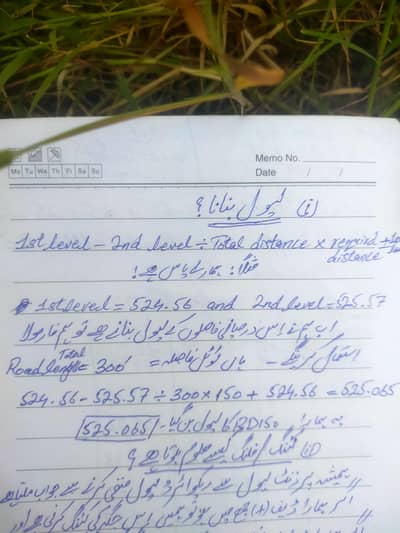 Memo No.
Mo Tu We Th Fr Sa Su
Date / /
(i) لیول بنانا ؟
1st level - 2nd level ÷ Total distance × required distance + 1st
مثلاً: ہمارے پاس ہے!
1st level = 524.56 and 2nd level = 525.57
اب ہم نے اس درمیانی فاصلوں کے لیول بنانے ہے تو ہم فارمولا
استعمال کریں گے - یہاں ٹوٹل فاصلہ = Total Road length = 300'
524.56 - 525.57 ÷ 300 × 150 + 524.56 = 525.065
یہ ہمارا RD150 کا لیول بن گیا - 525.065
(ii) کٹنگ / فلنگ کیسے معلوم ہوتا ہے ؟
ہمیشہ پرزنٹ لیول سے ڈیزائن لیول منفی کرنے سے جواب ملتا ہے
اگر ہمارا (+) میں ہو تو ہمیں اس جگہ کی کٹنگ کرنی ہے اور